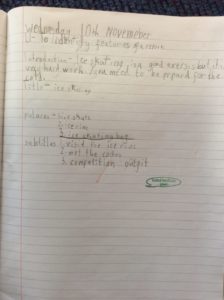 Wednesday 10th Novemeber
to identify features of a
introduction - Ice skating is a good exersis but it's
very hard work. You need to be prepard for the
cold.
title - ice skating
pictures - 1. ice skate
2. ice rink
3. ice skating bag
subtitles 1. visit the ice rink
2. met the coach
3. competition output